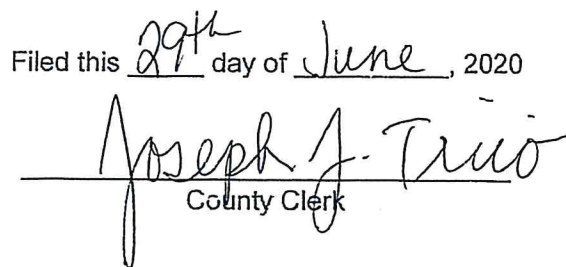 Filed this 29th day of June, 2020
Joseph J. Tirio
County Clerk